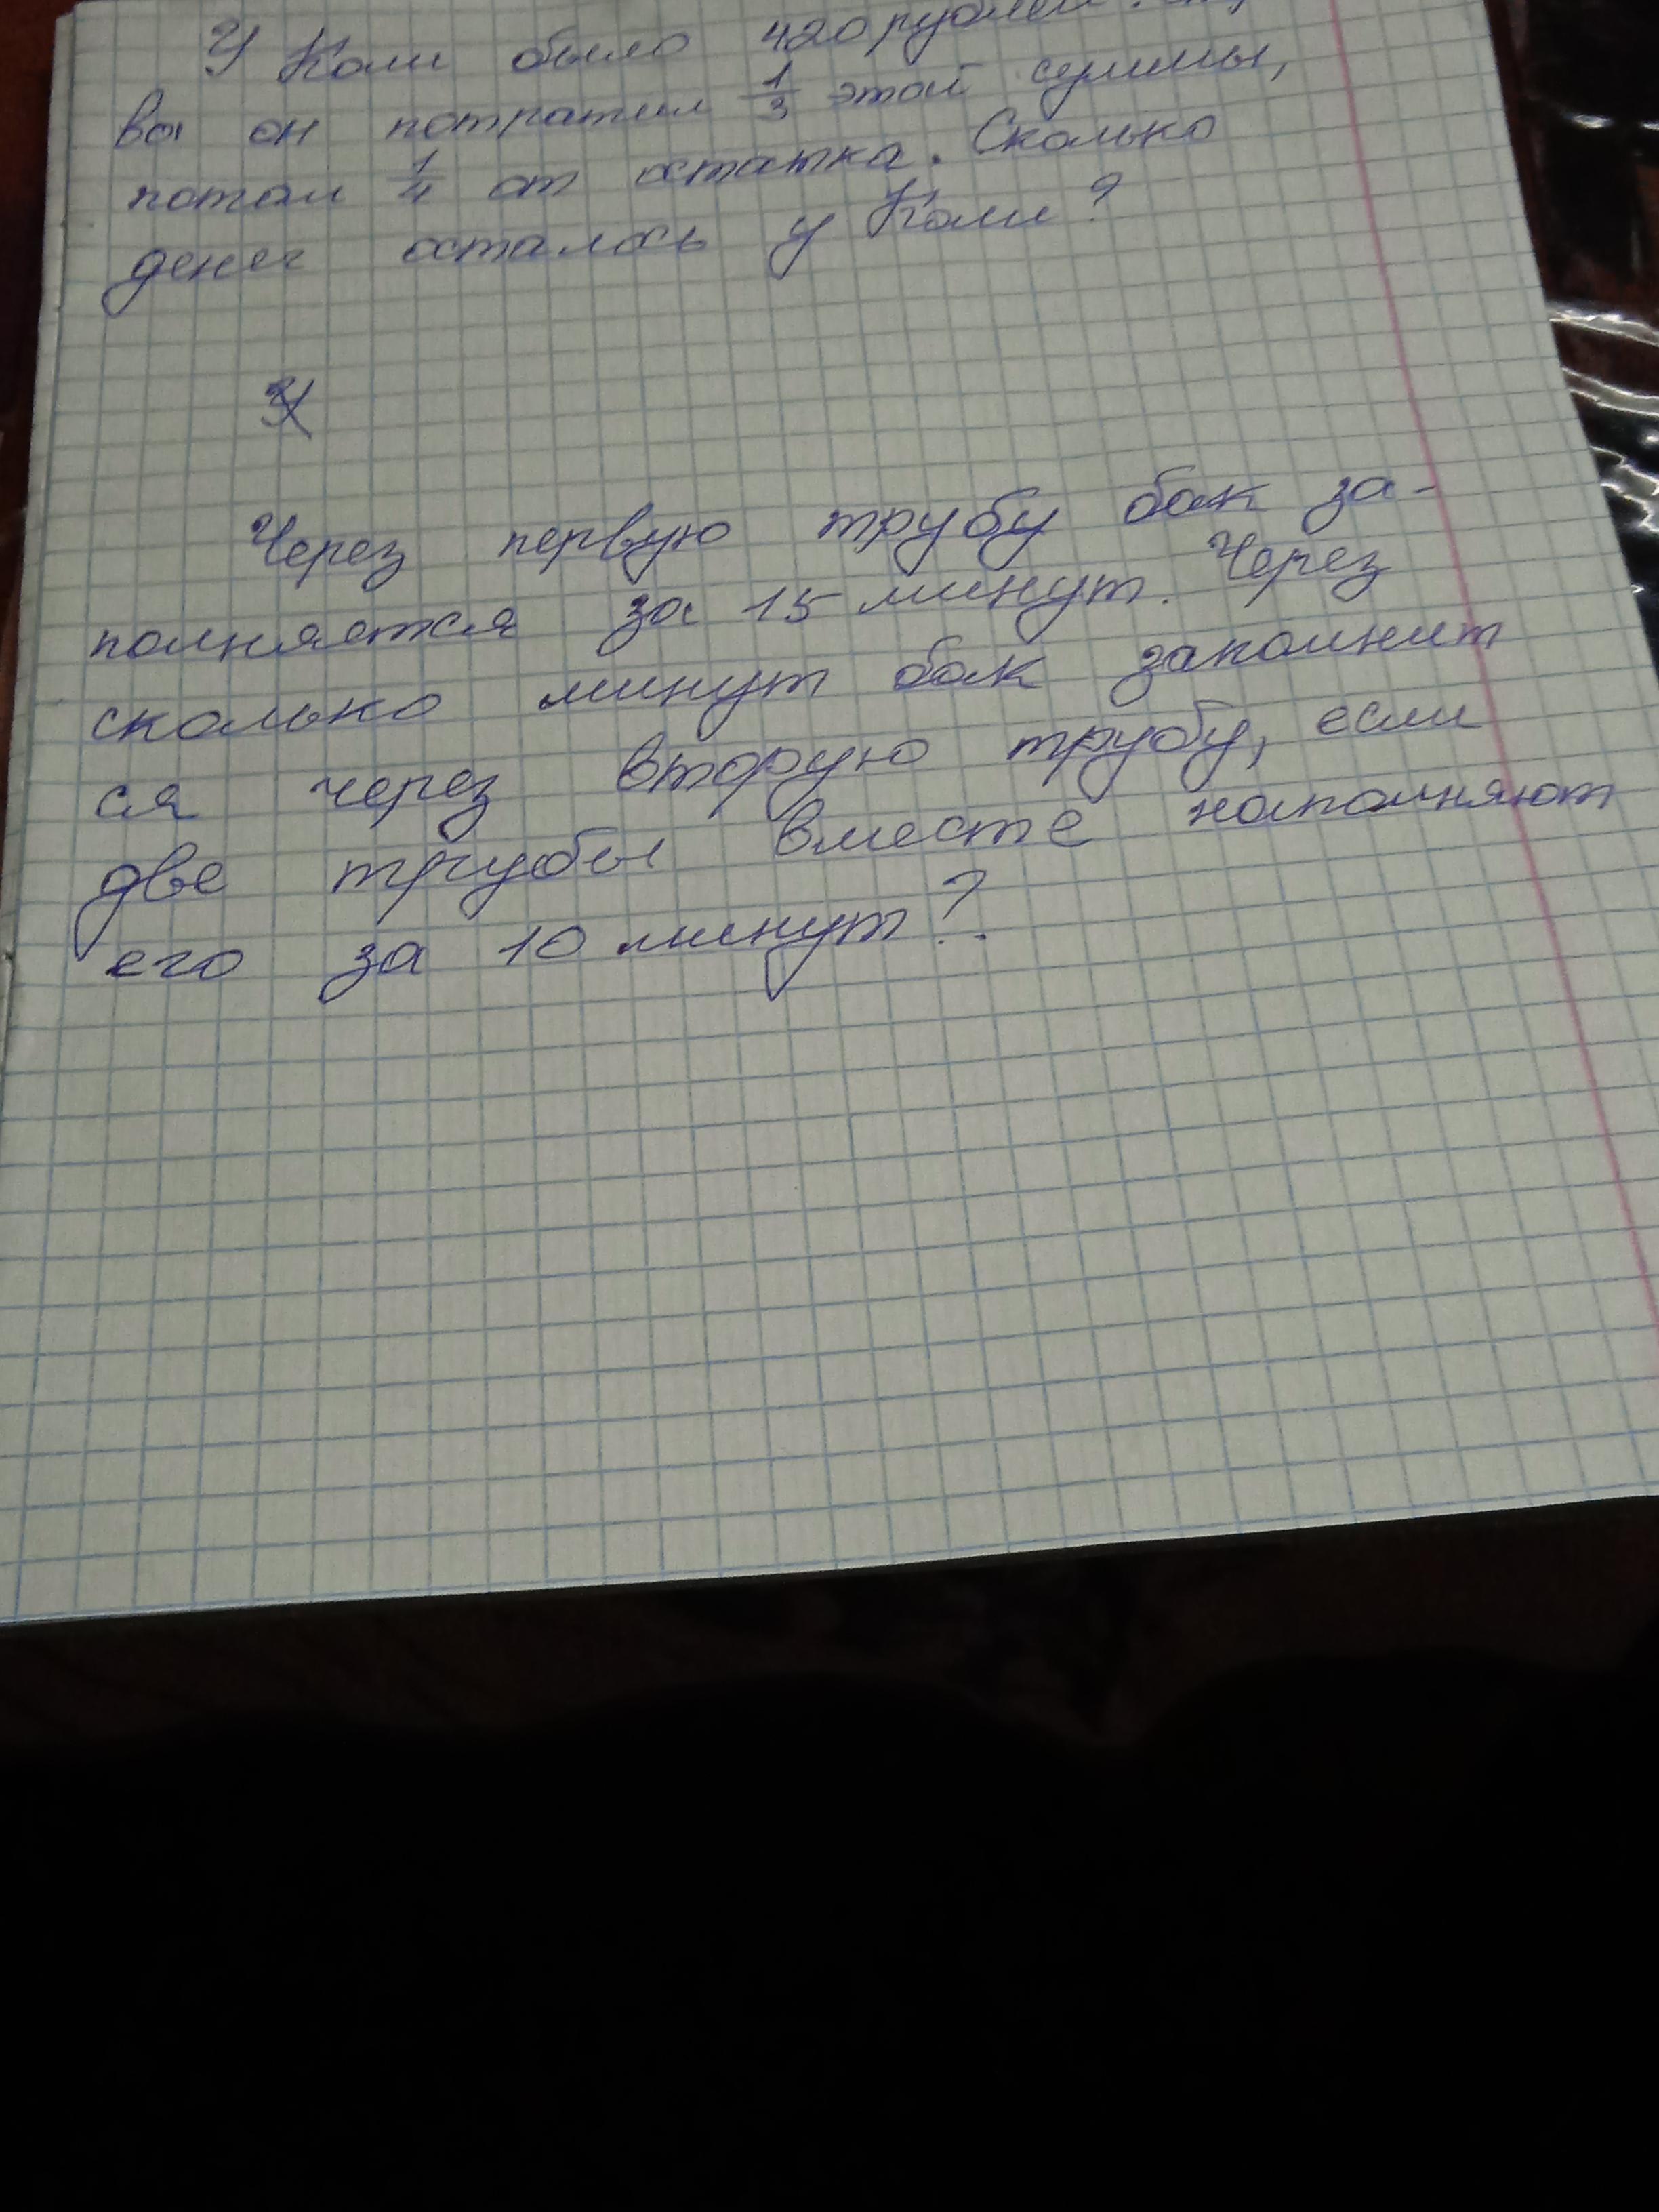 У Коли было 420 рублей.
ва он потратил 1/3 этой суммы,
потом 1/4 от остатка. Сколько
денег осталось у Коли?
Через первую трубу бак за-
полняется за 15 минут. Через
сколько минут бак заполнит
ся через вторую трубу, если
две трубы вместе наполняют
его за 10 минут?